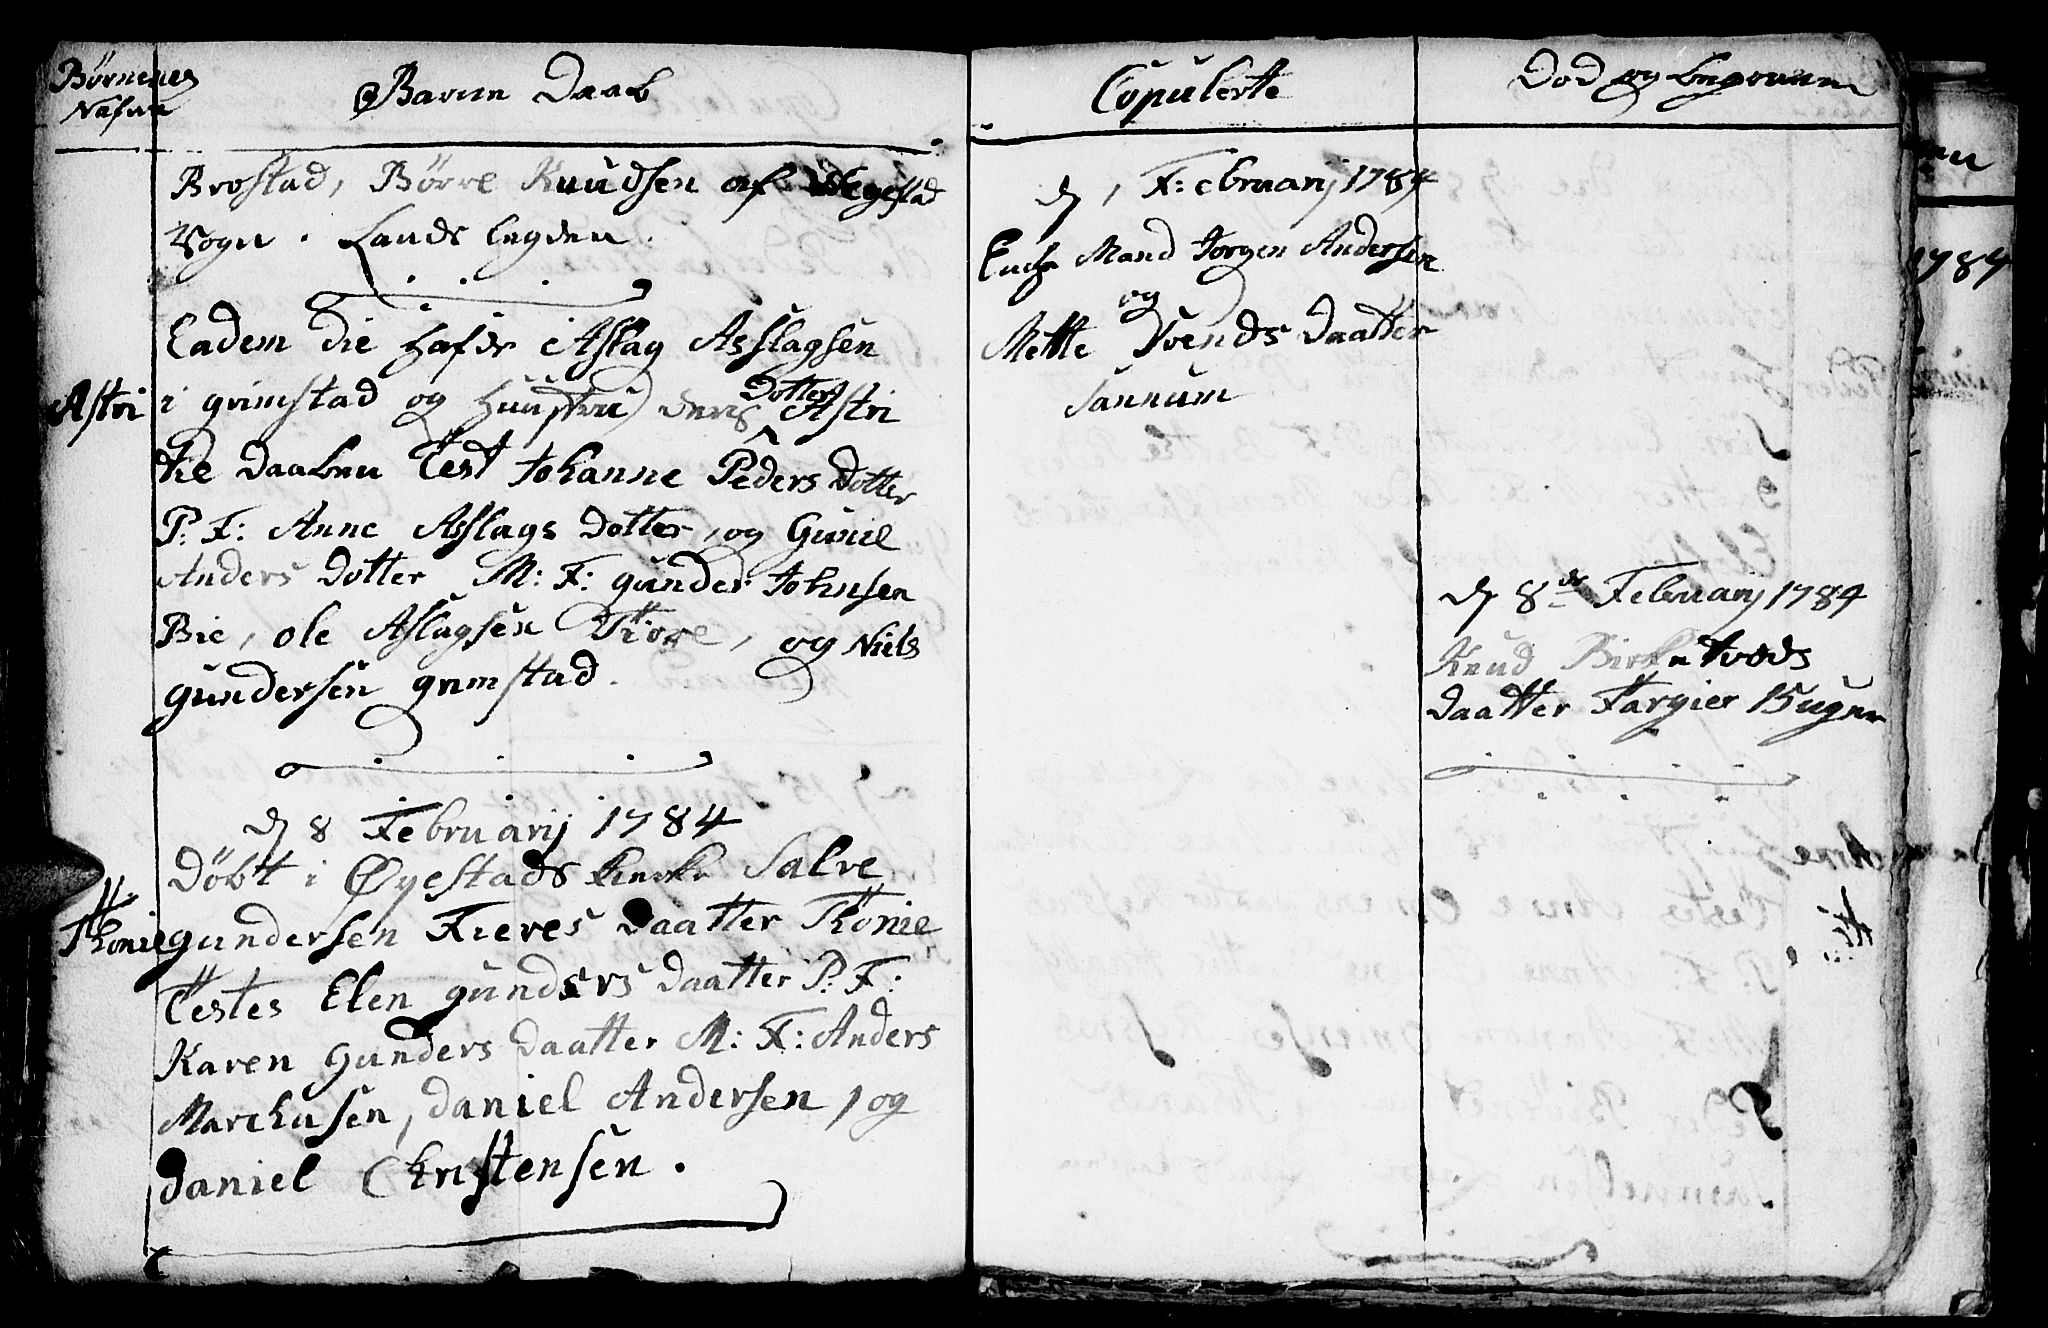 Børnenes
Nafne
Barne Daab
Brostad, Børre Knudsen af Wegestad
Sogn. Lands Engden.
Eadem die hafde Aslag Asslagsen
Astri
i grimstad og Huustru deris Dotter Astri
til Daaben Test Johanne Peders Dotter
P: F: Anne Asslags Dotter, og Gunil
Anders Dotter M: F: gunder Johnsen
Bie, ole Aslagsen Fiore, og Niels
gundersen grimstad.
d 8 Februarij 1784
Døbt i Øyestads kierke Salve
Thonie
gundersen Fieres Daatter Thonie
Testes Elen gunders Daatter P: F:
Karen Gunders Daatter M: F: Anders
Marchusen, Daniel Andersen, og
Daniel Christensen.
Copulerte
d 1 Februarij 1784
Encke Mand Jorgen Andersen
og
Mette Svends Daatter
Sannum
Død og begravne
d 8de Februarij 1784
Knud Birketveds
Daatter Targier 15 uger
1784